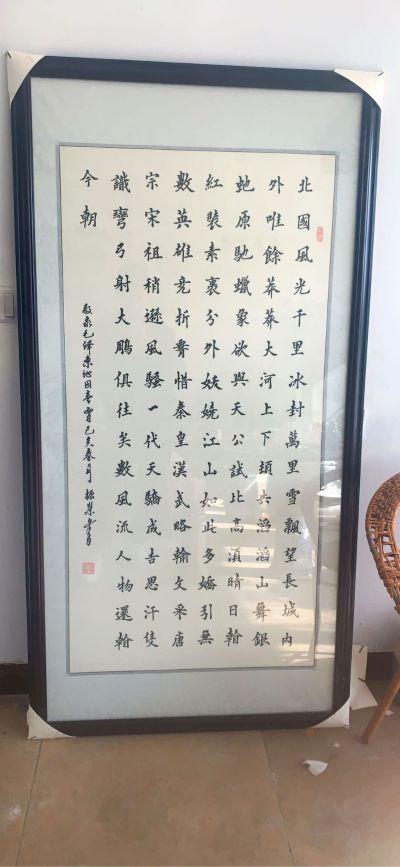 北國風光千里冰封萬里雪飄望長城內
外唯餘莽莽大河上下頓失滔滔山舞銀
虵原馳蠟象欲與天公試比高須晴日看
紅裝素裹分外妖嬈江山如此多嬌引無
數英雄竞折腰惜秦皇漢武略輸文采唐
宗宋祖稍遜風騷一代天驕成吉思汗隻
識彎弓射大鵰俱往矣數風流人物還看
今朝
敬录毛泽東沁园春雪己亥春月